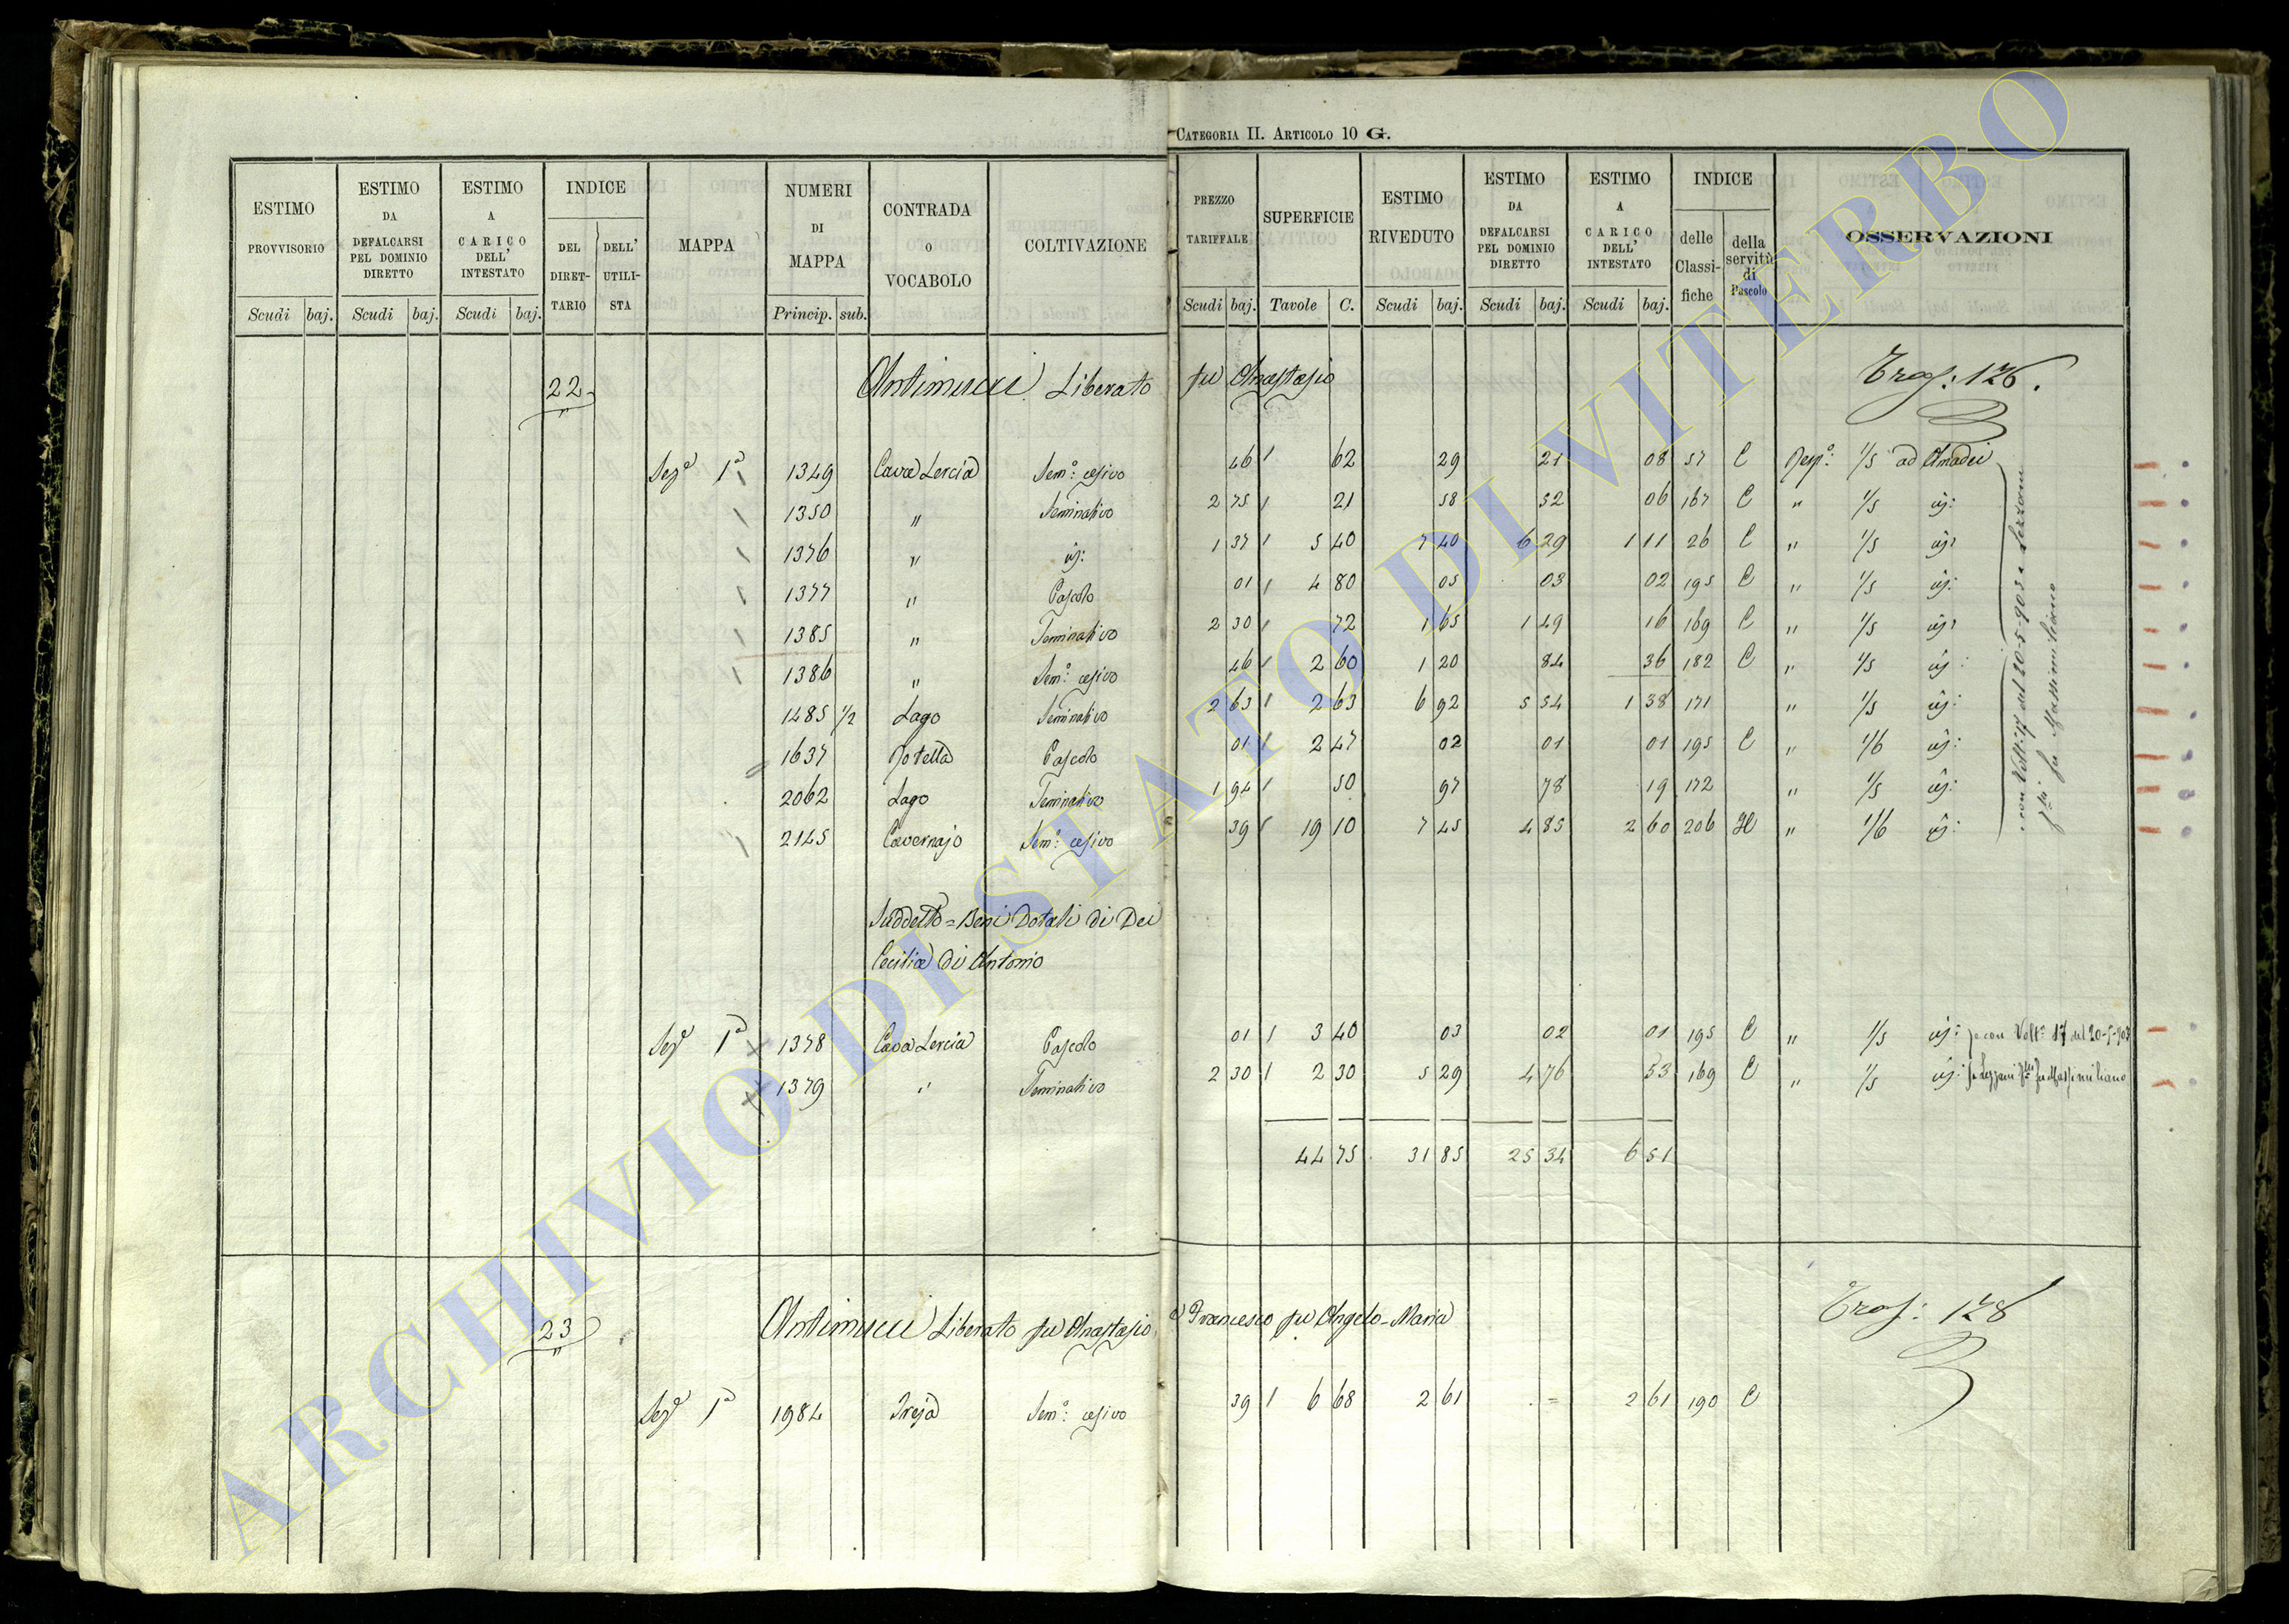 CATEGORIA II. ARTICOLO 10 G.
ESTIMO PROVVISORIO Scudi baj.
ESTIMO DA DEFALCARSI PEL DOMINIO DIRETTO Scudi baj.
ESTIMO A CARICO DELL' INTESTATO Scudi baj.
INDICE DEL DIRET-TARIO DELL' UTILI-STA
MAPPA
NUMERI DI MAPPA Princip. sub.
CONTRADA O VOCABOLO
COLTIVAZIONE
PREZZO TARIFFALE Scudi baj.
SUPERFICIE Tavole C.
ESTIMO RIVEDUTO Scudi baj.
ESTIMO DA DEFALCARSI PEL DOMINIO DIRETTO Scudi baj.
ESTIMO A CARICO DELL' INTESTATO Scudi baj.
INDICE delle Classi-fiche della servitù di Pascolo
OSSERVAZIONI
22 Antimucci Liberato fu Anastasio Tras: 126.
Sez.e 1a 1349 Cava Lercia Sem.o cesivo 46 1 62 29 21 08 57 C Resp.e 1/5 ad Amadei
1350 " Seminativo 2 75 1 21 58 52 06 167 C " 1/5 id:
1376 " id: 1 37 1 5 40 7 40 6 29 1 11 26 C " 1/5 id:
1377 " Pascolo 01 1 4 80 05 03 02 195 C " 1/5 id:
1385 " Seminativo 2 30 1 72 1 65 1 49 16 169 C " 1/5 id:
1386 " Sem.o cesivo 46 1 2 60 1 20 84 36 182 C " 1/5 id:
1485 1/2 Lago Seminativo 2 63 1 2 63 6 92 5 54 1 38 171 " 1/5 id:
1637 Rotella Pascolo 01 1 2 47 02 01 01 195 C " 1/6 id:
2062 Lago Seminativo 1 94 1 50 97 78 19 172 " 1/5 id:
2145 Cavernajo Sem.o cesivo 39 1 19 10 7 45 4 85 2 60 206 H " 1/6 id:
con Volt.a 17 del 20-5-903 a Lezzani
fu Massimiliano
Suddetto = Beni Dotali di Dei
Cecilia di Antonio
Sez.e 1a 1378 Cava Lercia Pascolo 01 1 3 40 03 02 01 195 C " 1/5 id: con Volt.a 17 del 20-5-903
1379 " Seminativo 2 30 1 2 30 5 29 4 76 53 169 C " 1/5 id: Lezzani fu Massimiliano
44 75 31 85 25 34 6 51
23 Antimucci Liberato fu Anastasio, e Francesco fu Angelo-Maria Tras: 128
Sez.e 1a 1984 Treja Sem.o cesivo 39 1 6 68 2 61 = 2 61 190 C
ARCHIVIO DI STATO DI VITERBO